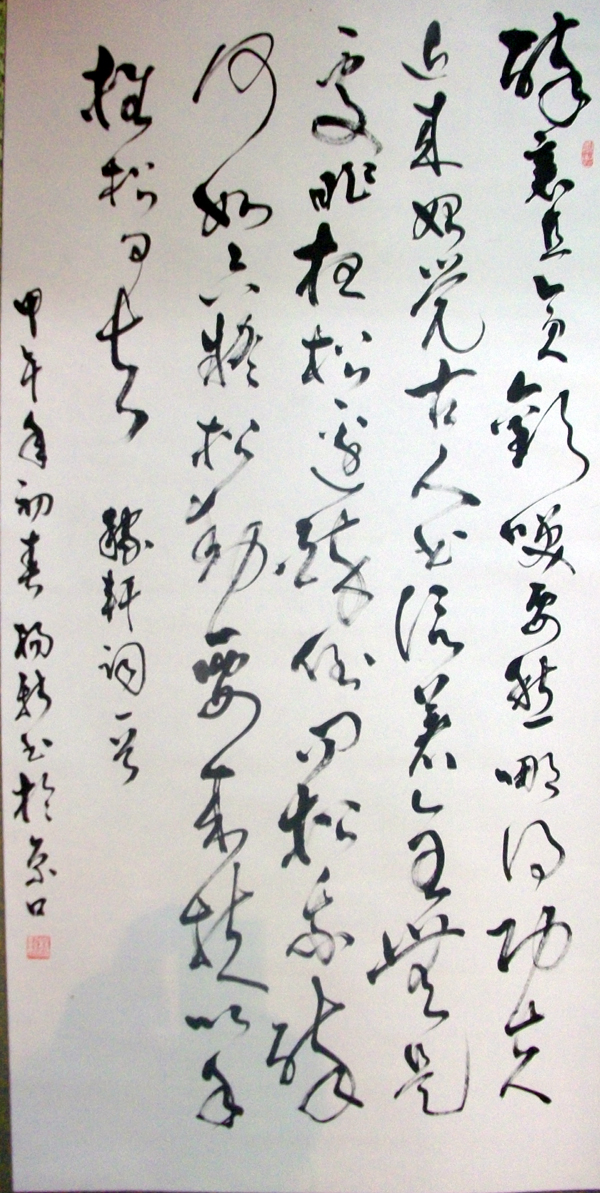 醉裏且貪歡咲要愁哪得功夫
近來始覺古人書信著全無是
處昨夜松邊醉倒問松我醉
何如只疑松動要來扶以手
推松曰去 稼軒詞一首
甲午年初春 書於京口